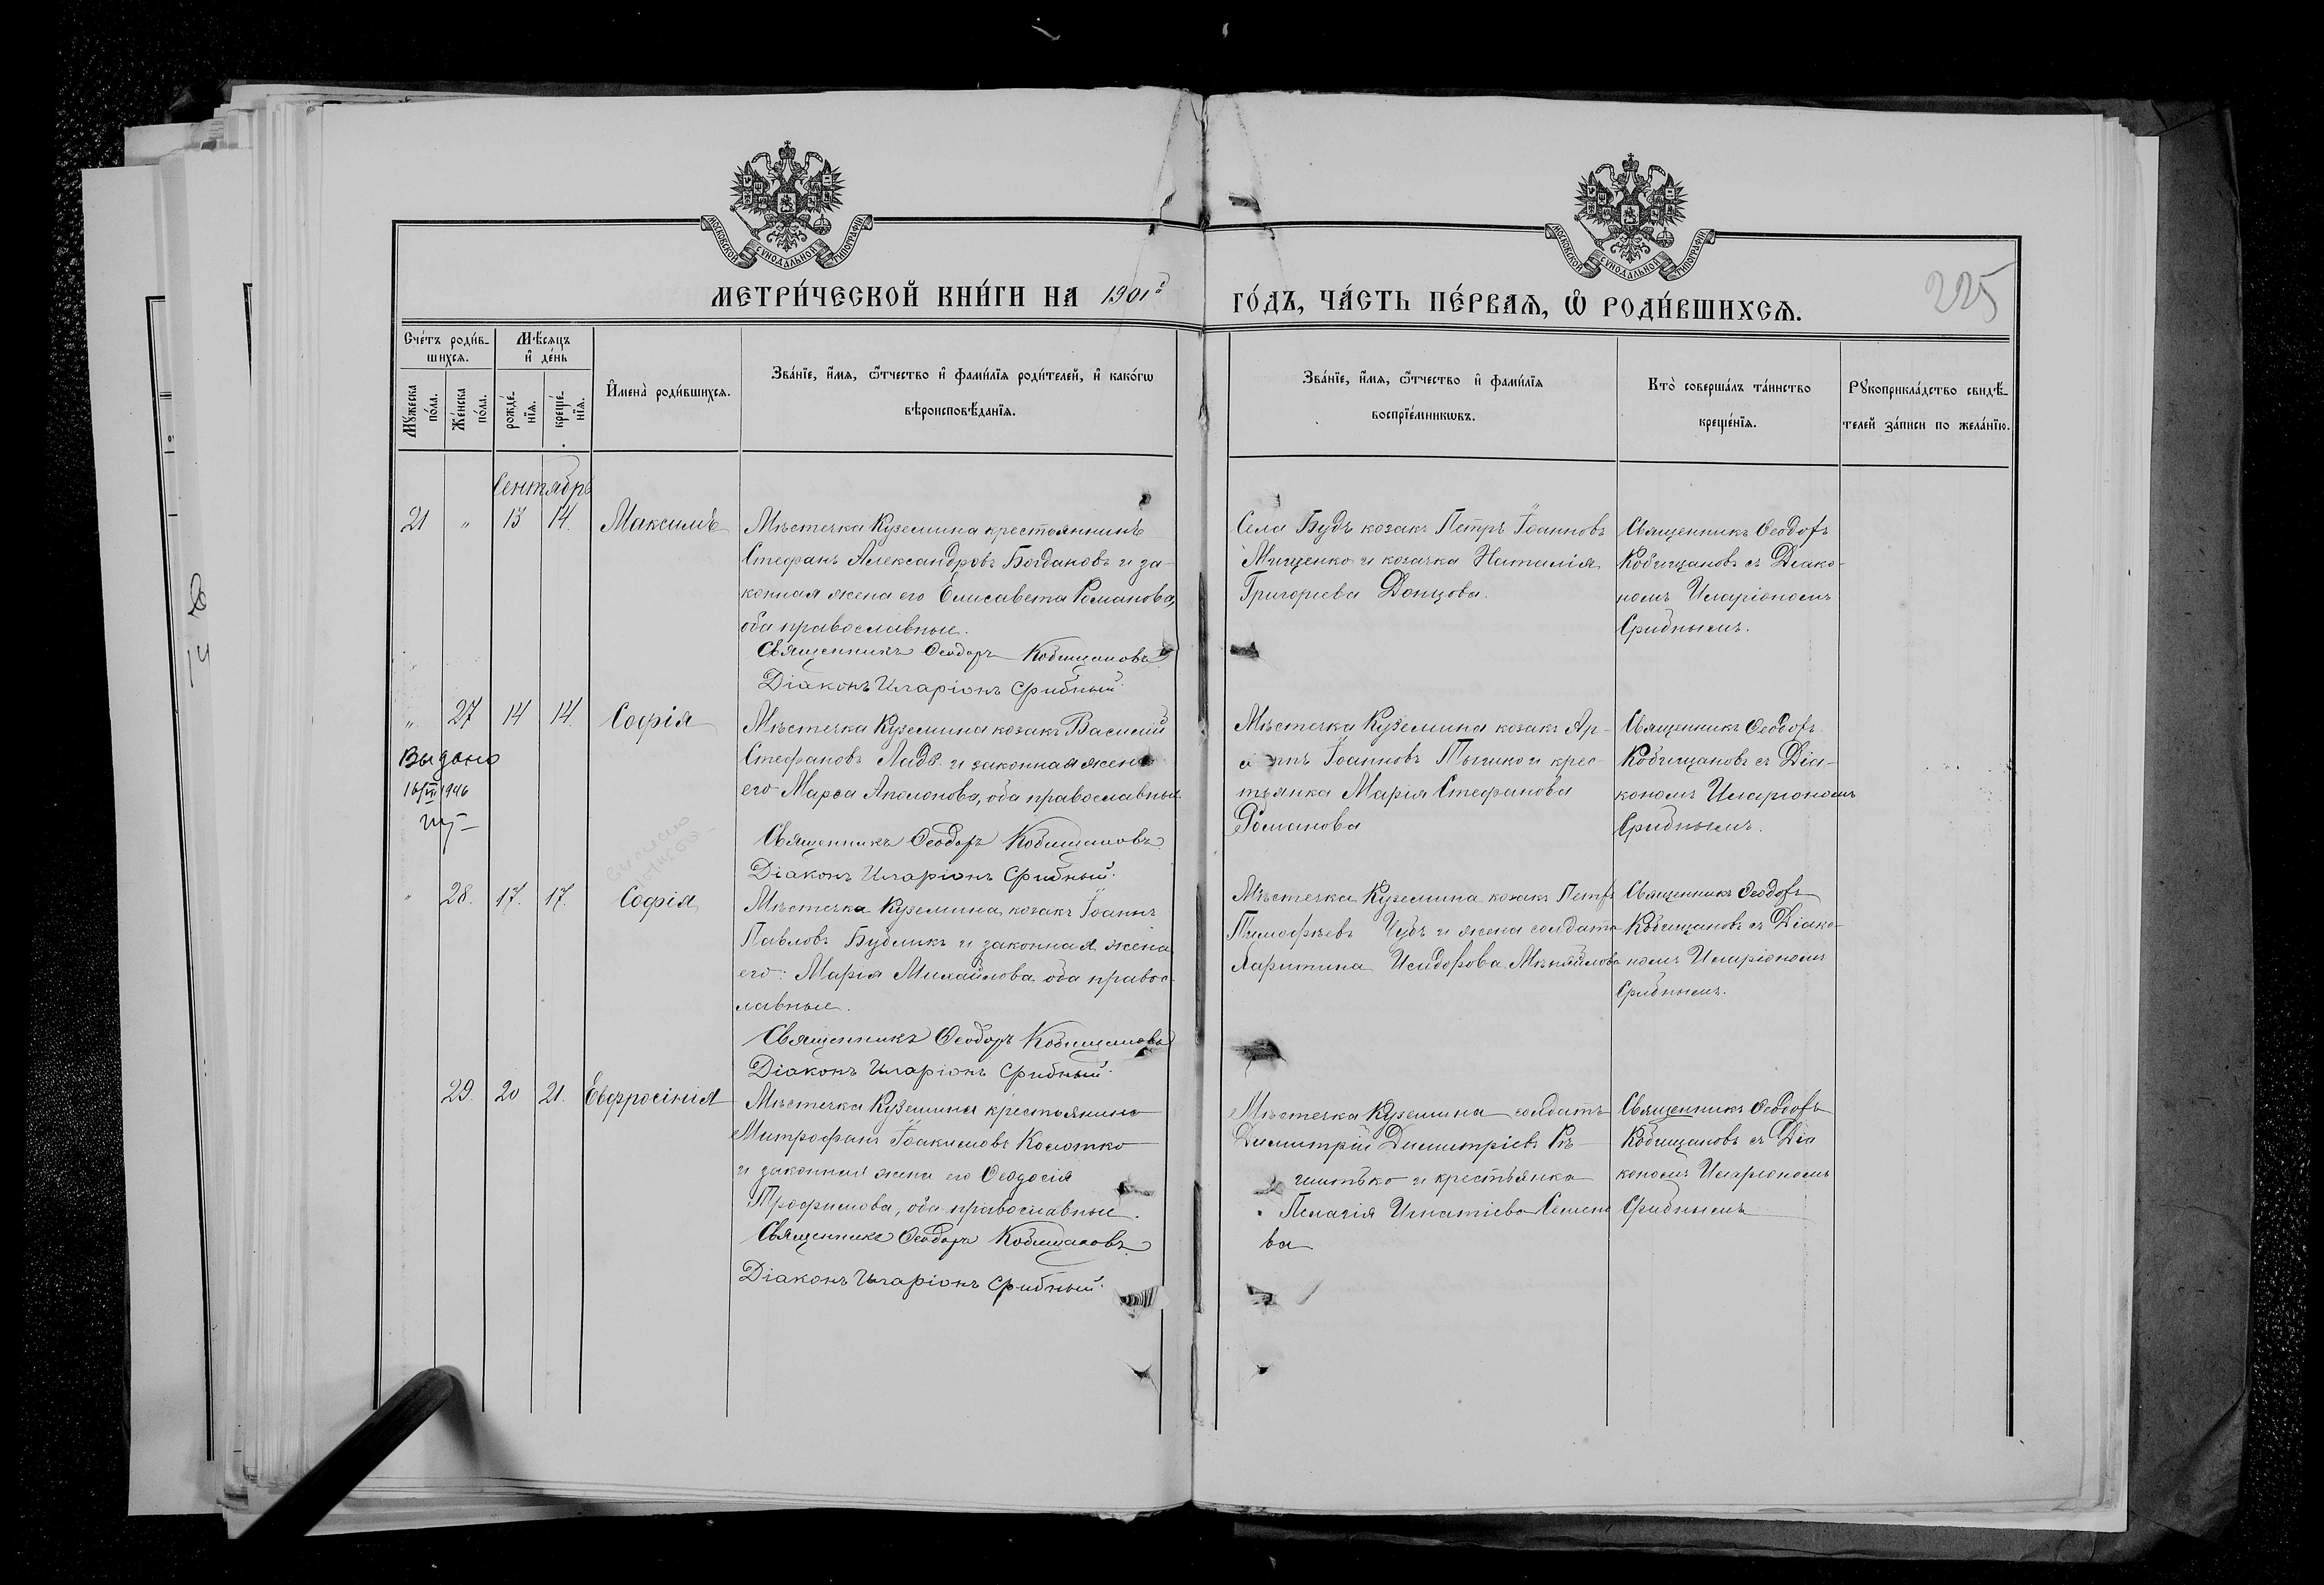 МОСКОВСКОЙ СѴНОДАЛЬНОЙ ТИПОГРАФІИ
МОСКОВСКОЙ СѴНОДАЛЬНОЙ ТИПОГРАФІИ
МЕТРИ́ЧЕСКОЙ КНИ́ГИ НА 1901й ГО́ДЪ, ЧА́СТЬ ПЕ́РВАѦ, Ѡ҆ РОДИ́ВШИХСѦ.
225
Сче́тъ роди́в-
шихсѧ.
Мѣ́сѧцъ
и҆ де́нь
Мꙋ́жеска
по́ла.
Же́нска
по́ла.
рожде́-
нїѧ.
креще́-
нїѧ.
И҆мена̀ роди́вшихсѧ.
Зва́нїе, и҆́мѧ, ѻ҆́тчество и҆ фами́лїѧ роди́телей, и҆ како́гѡ
вѣроисповѣ́данїѧ.
Зва́нїе, и҆́мѧ, ѻ҆́тчество и҆ фами́лїѧ
воспрїе́мникѡвъ.
Кто̀ соверша́лъ та́инство
креще́нїѧ.
Рꙋкоприкла́дство свидѣ́-
телей за́писи по жела́нїю.
Сентябрь
21 " 13 14. Максимъ
Мѣстечка Куземина крестьянинъ
Стефанъ Александровъ Богдановъ и за-
конная жена его Елисавета Романова,
оба православные.
Священникъ Ѳеодоръ Кобищановъ
Діаконъ Иларіонъ Срибный.
Села Будъ козакъ Петръ Іоанновъ
Мищенко и козачка Наталія
Григоріева Донцова.
Священникъ Ѳеодоръ
Кобищановъ съ Діако-
номъ Иларіономъ
Срибнымъ.
" 27 14 14. Софія
Выдано
16/III 1946
Мѣстечка Куземина козакъ Василій
Стефановъ Ладе и законная жена
его Марѳа Аполонова, оба православные
Священникъ Ѳеодоръ Кобищановъ
Діаконъ Иларіонъ Срибный.
Мѣстечка Куземина козакъ Ар-
Іоанновъ и крес-
тьянка Марія Стефанова
Романова
Священникъ Ѳеодоръ
Кобищановъ съ Діа-
кономъ Иларіономъ
Срибнымъ.
" 28. 17. 17. Софія
Мѣстечка Куземина козакъ Іоаннъ
Павловъ Бубликъ и законная жена
его: Марія Михайлова оба правос-
лавные.
Священникъ Ѳеодоръ Кобищановъ
Діаконъ Иларіонъ Срибный.
Мѣстечка Куземина козакъ Петръ
Тимофѣевъ Чубъ и жена солдата
Харитина Исидорова Михайлова
Священникъ Ѳеодоръ
Кобищановъ съ Діако-
номъ Иларіономъ
Срибнымъ.
29. 20 21. Евфросінія
Мѣстечка Куземина крестьянинъ
Митрофанъ Іоакимовъ Колотко
и законная жена его Ѳеодосія
Трофимова, оба православные.
Священникъ Ѳеодоръ Кобищановъ
Діаконъ Иларіонъ Срибный.
Мѣстечка Куземина солдатъ
Димитрій Димитріевъ
и крестьянка
Пелагія Игнатіева Семено
ва
Священникъ Ѳеодоръ
Кобищановъ съ Діа
кономъ Иларіономъ
Срибнымъ